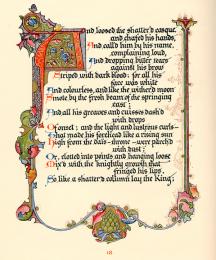 And loosed the shatter'd casque,
and chafed his hands,
And call'd him by his name,
complaining loud,
And dropping bitter tears
against his brow
Striped with dark blood: for all his
face was white
And colourless, and like the wither'd moon
Smote by the fresh beam of the springing
east;
And all his greaves and cuisses dash'd
with drops
Of onset; and the light and lustrous curls—
That made his forehead like a rising sun
High from the daïs-throne—were parch'd
with dust;
Or, clotted into points and hanging loose,
Mix'd with the knightly growth that
fringed his lips.
So like a shatter'd column lay the King;
18